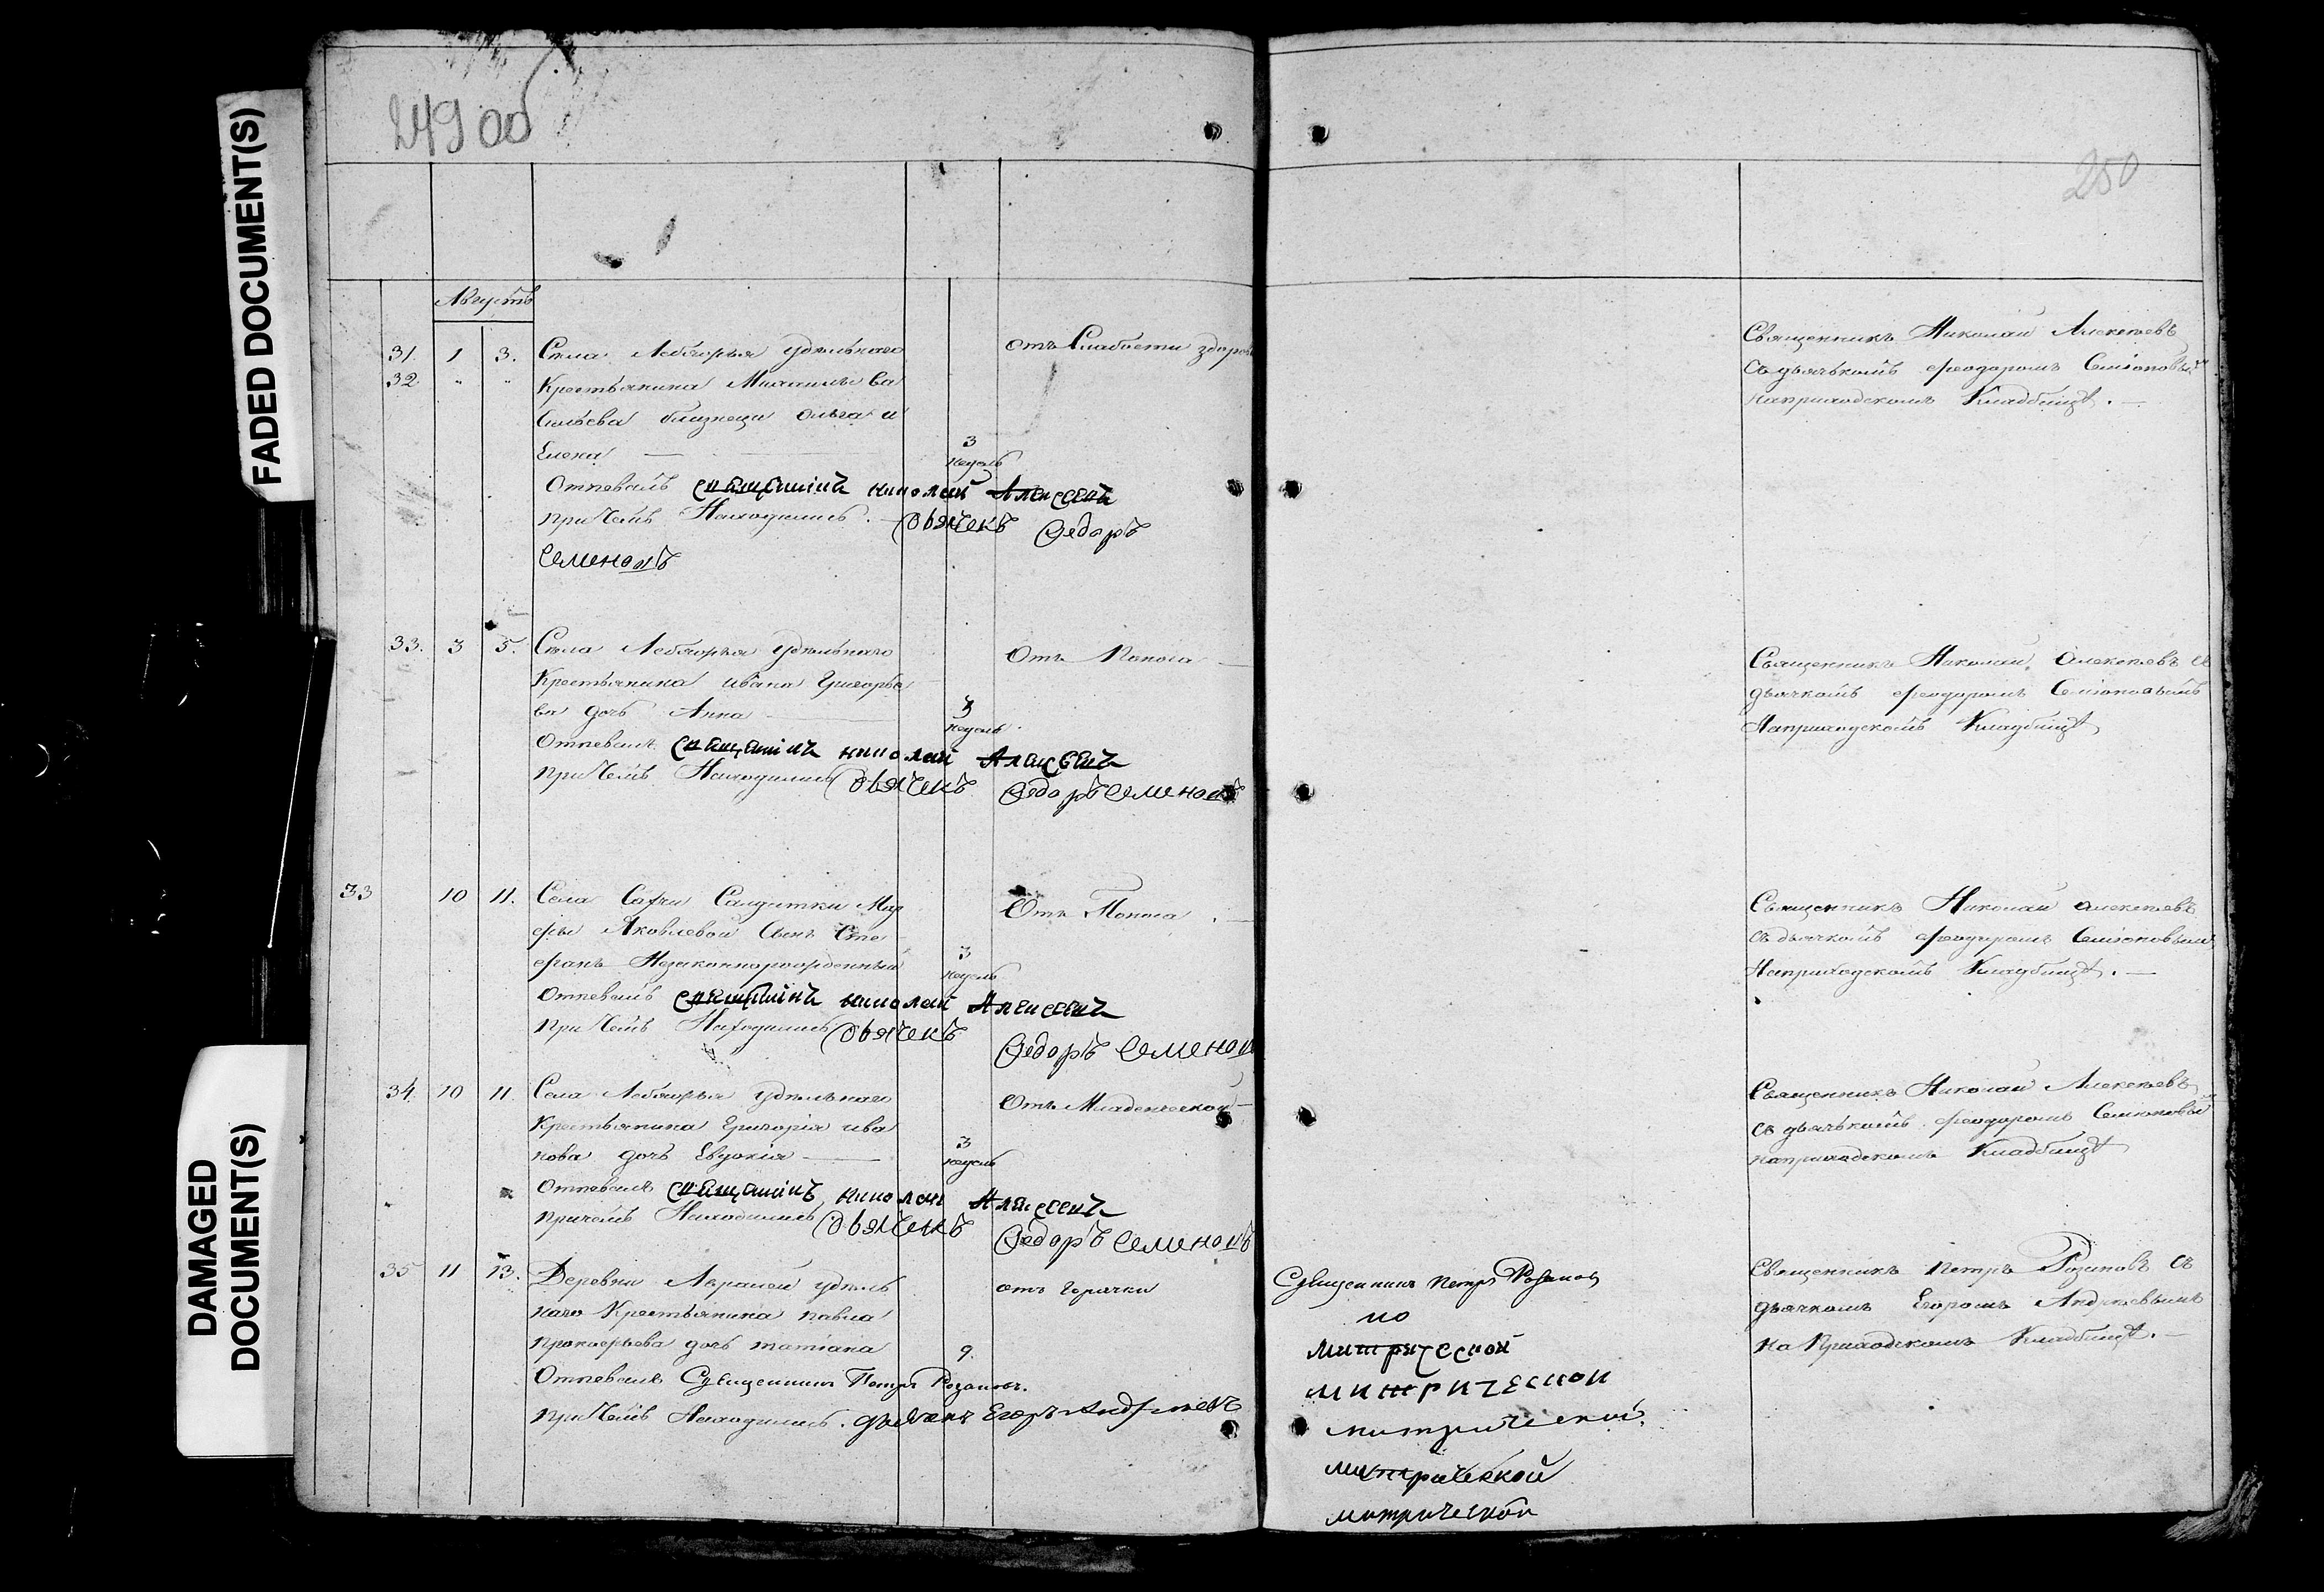 FADED DOCUMENT(S)
DAMAGED
DOCUMENT(S)
249 об
250
Августъ
31. 1 3. Села Лебяжья удѣльнаго отъ Слабости здоров
32. " " Крестьянина Михаила Ва
сильева близнецы Ольга и
Елена — 3 недѣль
Отпевалъ священникъ николай Алексеевъ
При чемъ Находились. Дьячекъ Ѳедоръ
Семеновъ
Священникъ Николай Алексѣевъ
Съ дьячькомъ Ѳеодоромъ Семіоновымъ
На приходскомъ Кладбищѣ. —
33. 3 5. Села Лебяжья Удѣльнаго Отъ Поноса —
Крестьянина ивана Григорье
ва дочь Анна 3 недѣль.
Отпевалъ священникъ николай Алексеевъ
При чемъ Находились Дьячекъ Ѳедоръ Семеновъ
Священникъ Николай Алексѣевъ съ
дьячкомъ Ѳеодоромъ Семіоновымъ
На приходскомъ Кладбищѣ
33 10 11. Села Салдатки Мар Отъ Поноса. —
ѳы Яковлевой Сынъ Сте
ѳанъ Незаконнорожденный 3 недѣль
Отпевалъ священникъ николай Алексеевъ
При чемъ Находились Дьячекъ
Ѳедоръ Семенов
Священникъ Николай Алексѣевъ
съ дьячкомъ Ѳеодоромъ Семіоновымъ
На приходскомъ Кладбищѣ. —
34. 10 11. Села Лебяжья Удѣльнаго Отъ Младенческой —
Крестьянина Григорія ива
нова дочь Евдокія — 3 недѣль
Отпевалъ священникъ николай Алексеевъ
При чемъ Находились Дьячекъ
Ѳедоръ Семеновъ
Священникъ Николай Алексѣевъ
съ дьячькомъ Ѳеодоромъ Семіоновы
на приходскомъ Кладбищѣ
35 11 13. Деревни удѣль отъ Горячки
наго Крестьянина павла
Прокоѳьева дочь татіана 9.
Отпевалъ Священникъ Петръ Розановъ.
При чемъ Находились. дьячекъ Егоръ Андреевъ
Священникъ Петръ Розановъ
по
митрической
митрической
митрической.
митрической
митрической
Священникъ Петръ Розановъ съ
дьячкомъ Егоромъ Андреевымъ
На Приходскомъ Кладбищѣ. —